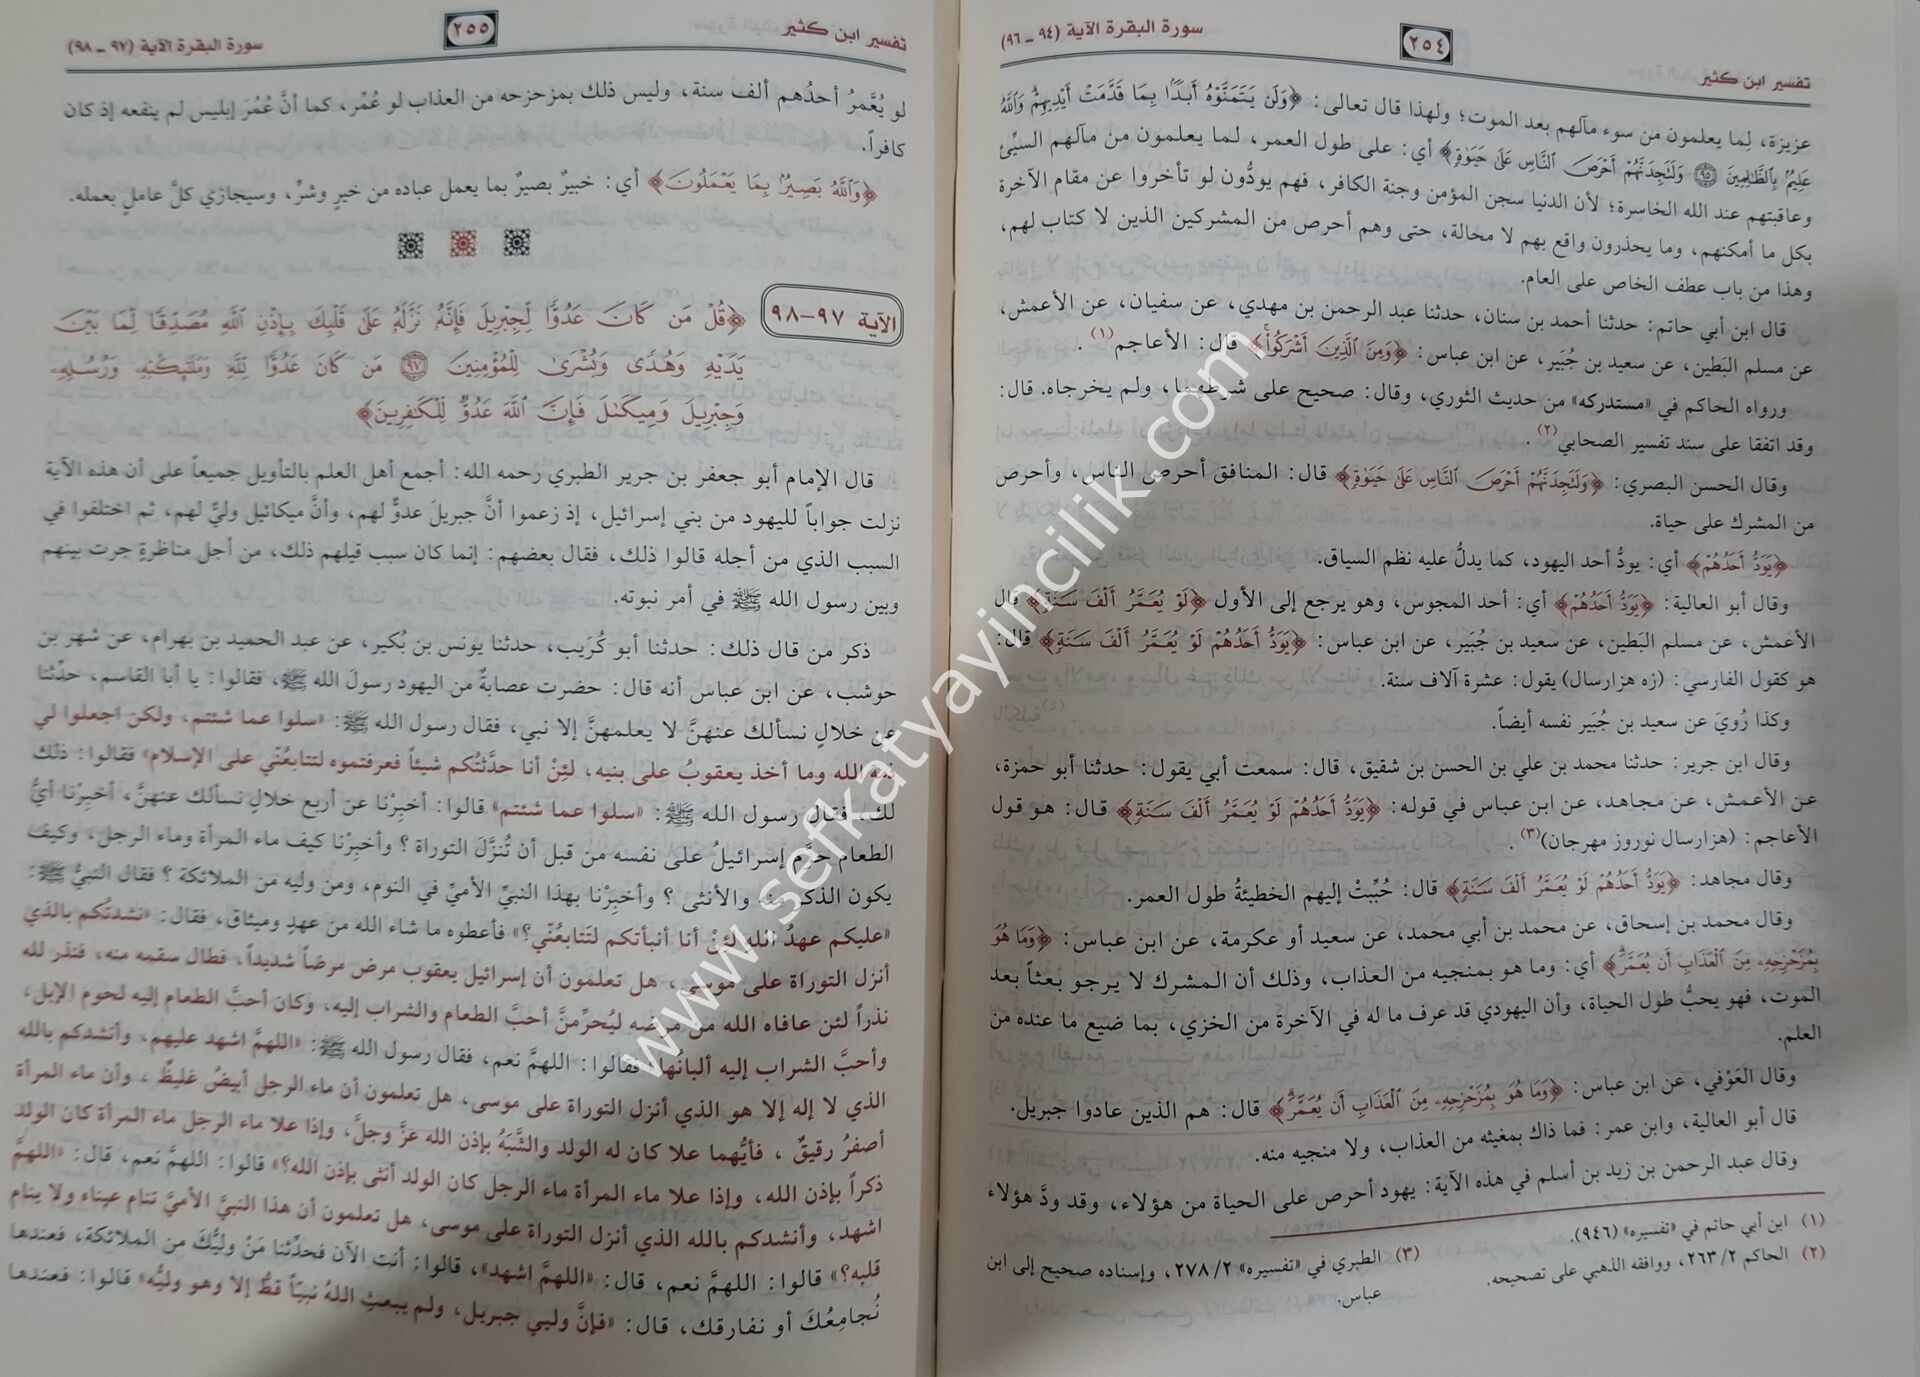 تفسير ابن كثير
٢٥٤
سورة البقرة الآية (٩٤ - ٩٦)
عزيزة، لِما يعلمون من سوء مآلهم بعد الموت؛ ولهذا قال تعالى: ﴿وَلَن يَتَمَنَّوْهُ أَبَدًا بِمَا قَدَّمَتْ أَيْدِيهِمْ وَاللَّهُ
عَلِيمٌ بِالظَّالِمِينَ ۝٩٥ وَلَتَجِدَنَّهُمْ أَحْرَصَ النَّاسِ عَلَىٰ حَيَوٰةٍ﴾ أي: على طول العمر، لما يعلمون من مآلهم السيِّئ
وعاقبتهم عند الله الخاسرة؛ لأن الدنيا سجن المؤمن وجنة الكافر، فهم يودُّون لو تأخروا عن مقام الآخرة
بكل ما أمكنهم، وما يحذرون واقع بهم لا محالة، حتى وهم أحرص من المشركين الذين لا كتاب لهم،
وهذا من باب عطف الخاص على العام.
قال ابن أبي حاتم: حدثنا أحمد بن سنان، حدثنا عبد الرحمن بن مهدي، عن سفيان، عن الأعمش،
عن مسلم البَطين، عن سعيد بن جُبَير، عن ابن عباس: ﴿وَمِنَ الَّذِينَ أَشْرَكُوا﴾ قال: الأعاجم(١).
ورواه الحاكم في «مستدركه» من حديث الثوري، وقال: صحيح على شرطهما، ولم يخرجاه. قال:
وقد اتفقا على سند تفسير الصحابي(٢).
وقال الحسن البصري: ﴿وَلَتَجِدَنَّهُمْ أَحْرَصَ النَّاسِ عَلَىٰ حَيَوٰةٍ﴾ قال: المنافق أحرص الناس، وأحرص
من المشرك على حياة.
﴿يَوَدُّ أَحَدُهُمْ﴾ أي: يودُّ أحد اليهود، كما يدلُّ عليه نظم السياق.
وقال أبو العالية: ﴿يَوَدُّ أَحَدُهُمْ﴾ أي: أحد المجوس، وهو يرجع إلى الأول ﴿لَوْ يُعَمَّرُ أَلْفَ سَنَةٍ﴾ قال
الأعمش، عن مسلم البَطين، عن سعيد بن جُبَير، عن ابن عباس: ﴿يَوَدُّ أَحَدُهُمْ لَوْ يُعَمَّرُ أَلْفَ سَنَةٍ﴾ قال:
هو كقول الفارسي: (زه هزارسال) يقول: عشرة آلاف سنة.
وكذا رُويَ عن سعيد بن جُبَير نفسه أيضاً.
وقال ابن جرير: حدثنا محمد بن علي بن الحسن بن شقيق، قال: سمعت أبي يقول: حدثنا أبو حمزة،
عن الأعمش، عن مجاهد، عن ابن عباس في قوله: ﴿يَوَدُّ أَحَدُهُمْ لَوْ يُعَمَّرُ أَلْفَ سَنَةٍ﴾ قال: هو قول
الأعاجم: (هزارسال نوروز مهرجان)(٣).
وقال مجاهد: ﴿يَوَدُّ أَحَدُهُمْ لَوْ يُعَمَّرُ أَلْفَ سَنَةٍ﴾ قال: حُبِّبتْ إليهم الخطيئةُ طول العمر.
وقال محمد بن إسحاق، عن محمد بن أبي محمد، عن سعيد أو عكرمة، عن ابن عباس: ﴿وَمَا هُوَ
بِمُزَحْزِحِهِ مِنَ الْعَذَابِ أَن يُعَمَّرَ﴾ أي: وما هو بمنجيه من العذاب، وذلك أن المشرك لا يرجو بعثاً بعد
الموت، فهو يحبُّ طول الحياة، وأن اليهودي قد عرف ما له في الآخرة من الخزي، بما ضيع ما عنده من
العلم.
وقال العَوْفي، عن ابن عباس: ﴿وَمَا هُوَ بِمُزَحْزِحِهِ مِنَ الْعَذَابِ أَن يُعَمَّرَ﴾ قال: هم الذين عادوا جبريل.
قال أبو العالية، وابن عمر: فما ذاك بمغيثه من العذاب، ولا منجيه منه.
وقال عبد الرحمن بن زيد بن أسلم في هذه الآية: يهود أحرص على الحياة من هؤلاء، وقد ودَّ هؤلاء
(١) ابن أبي حاتم في «تفسيره» (٩٤٦).
(٢) الحاكم ٢/ ٢٦٣، ووافقه الذهبي على تصحيحه.
(٣) الطبري في «تفسيره» ٢/ ٢٧٨، وإسناده صحيح إلى ابن
عباس.
تفسير ابن كثير
٢٥٥
سورة البقرة الآية (٩٧ - ٩٨)
لو يُعَّمرُ أحدُهم ألف سنة، وليس ذلك بمزحزحه من العذاب لو عُمِّر، كما أنَّ عُمُرَ إبليس لم ينفعه إذ كان
كافراً.
﴿وَاللَّهُ بَصِيرٌ بِمَا يَعْمَلُونَ﴾ أي: خبيرٌ بصيرٌ بما يعمل عباده من خيرٍ وشرٍّ، وسيجازي كلَّ عاملٍ بعمله.
الآية ٩٧-٩٨
﴿قُلْ مَن كَانَ عَدُوًّا لِّجِبْرِيلَ فَإِنَّهُ نَزَّلَهُ عَلَىٰ قَلْبِكَ بِإِذْنِ اللَّهِ مُصَدِّقًا لِّمَا بَيْنَ
يَدَيْهِ وَهُدًى وَبُشْرَىٰ لِلْمُؤْمِنِينَ ۝٩٧ مَن كَانَ عَدُوًّا لِّلَّهِ وَمَلَٰٓئِكَتِهِ وَرُسُلِهِ
وَجِبْرِيلَ وَمِيكَىٰلَ فَإِنَّ اللَّهَ عَدُوٌّ لِّلْكَٰفِرِينَ﴾
قال الإمام أبو جعفر بن جرير الطبري رحمه الله: أجمع أهل العلم بالتأويل جميعاً على أن هذه الآية
نزلت جواباً لليهود من بني إسرائيل، إذ زعموا أنَّ جبريلَ عدوٌّ لهم، وأنَّ ميكائيل وليٌّ لهم، ثم اختلفوا في
السبب الذي من أجله قالوا ذلك، فقال بعضهم: إنما كان سبب قيلهم ذلك، من أجل مناظرةٍ جرت بينهم
وبين رسول الله ﷺ في أمر نبوته.
ذكر من قال ذلك: حدثنا أبو كُرَيب، حدثنا يونس بن بُكير، عن عبد الحميد بن بهرام، عن شهر بن
حوشب، عن ابن عباس أنه قال: حضرت عصابةٌ من اليهود رسولَ الله ﷺ، فقالوا: يا أبا القاسم، حدِّثنا
عن خلالٍ نسألك عنهنَّ لا يعلمهنَّ إلا نبي، فقال رسول الله ﷺ: «سلوا عما شئتم، ولكن اجعلوا لي
ذمة الله وما أخذ يعقوبُ على بنيه، لئِنْ أنا حدَّثتُكم شيئاً فعرفتموه لتتابعُنّي على الإسلام» فقالوا: ذلك
لك. فقال رسول الله ﷺ: «سلوا عما شئتم» قالوا: أخبِرْنا عن أربع خلالٍ نسألك عنهنَّ، أخبِرْنا أيُّ
الطعام حرَّم إسرائيلُ على نفسه من قبل أن تُنزَّلَ التوراة؟ وأخبِرْنا كيف ماء المرأة وماء الرجل، وكيف
يكون الذكر منه والأنثى؟ وأخبِرْنا بهذا النبيِّ الأميِّ في النوم، ومن وليه من الملائكة؟ فقال النبيُّ ﷺ:
«عليكم عهدُ الله لئِنْ أنا أنبأتكم لتَتابعُنّي؟» فأعطوه ما شاء الله من عهدٍ وميثاق، فقال: «نشدتُكم بالذي
أنزل التوراة على موسى، هل تعلمون أن إسرائيل يعقوب مرض مرضاً شديداً، فطال سقمه منه، فنذر لله
نذراً لئن عافاه الله من مرضه ليُحرِّمنَّ أحبَّ الطعام والشراب إليه، وكان أحبَّ الطعام إليه لحوم الإبل،
وأحبَّ الشراب إليه ألبانُها» فقالوا: اللهمَّ نعم، فقال رسول الله ﷺ: «اللهمَّ اشهد عليهم، وأنشدكم بالله
الذي لا إله إلا هو الذي أنزل التوراة على موسى، هل تعلمون أن ماء الرجل أبيضُ غليظٌ، وأن ماء المرأة
أصفرُ رقيقٌ، فأيُّهما علا كان له الولد والشَّبَهُ بإذن الله عزَّ وجلَّ، وإذا علا ماء الرجل ماء المرأة كان الولد
ذكراً بإذن الله، وإذا علا ماء المرأة ماء الرجل كان الولد أنثى بإذن الله؟» قالوا: اللهمَّ نعم، قال: «اللهمَّ
اشهد، وأنشدكم بالله الذي أنزل التوراة على موسى، هل تعلمون أن هذا النبيَّ الأميَّ تنام عيناه ولا ينام
قلبه؟» قالوا: اللهمَّ نعم، قال: «اللهمَّ اشهد»، قالوا: أنت الآن فحدِّثنا مَنْ وليُّكَ من الملائكة، فعندها
نُجامِعُكَ أو نفارقك، قال: «فإنَّ وليي جبريل، ولم يبعثِ اللهُ نبيّاً قطُّ إلا وهو وليُّه» قالوا: فعندها
www.sefkatyayincilik.com